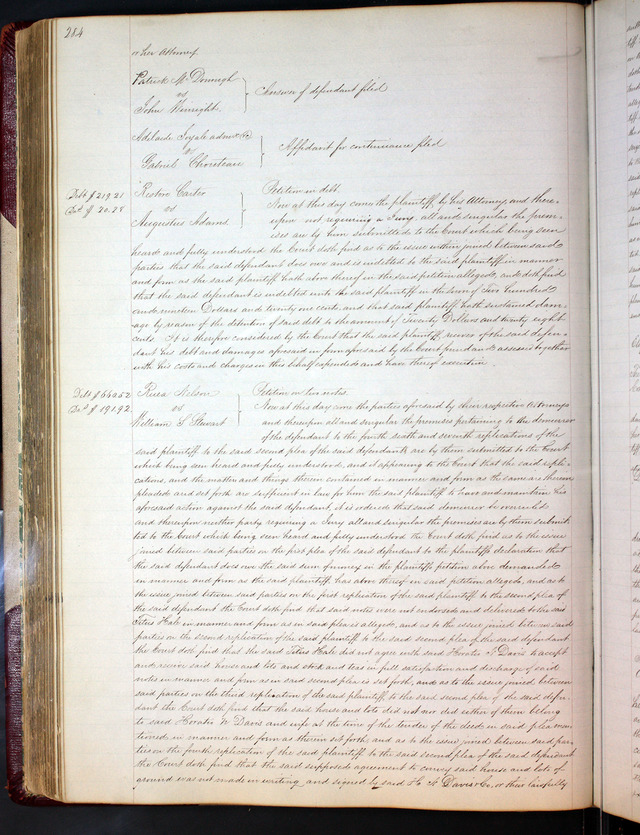 284
or her Attorney
Patrick McDonough
vs
John Enright
Answer of defendant filed
Adelaide Soyale admx &c
vs
Gabriel Chouteau
Affidavit for continuance filed
Debt $219.21
Das $20.28
Carter
vs
Augustus Adams
Petition in debt.
Now at this day comes the plaintiff by his Attorney and there-
upon not requiring a Jury, all and singular the prem-
ises are by him submitted to the Court which being seen
heard and fully understood the Court doth find as to the issue within joined between said
parties that the said defendant does owe and is indebted to the said plaintiff in manner
and form as the said plaintiff hath above thereof in the said petition alleged, and doth find
that the said defendant is indebted unto the said plaintiff in the sum of Two hundred
and nineteen Dollars and twenty one cents, and that said plaintiff hath sustained dam-
age by reason of the detention of said debt to the amount of Twenty Dollars and twenty eight
cents. It is therefore considered by the Court that the said plaintiff recover of the said defen-
dant his debt and damages aforesaid in form aforesaid by the Court found and assessed together
with his costs and charges in this behalf expended and have thereof execution.
Debt $640.52
Das $191.92
Nelson
vs
William S Stewart
Petition on two notes.
Now at this day come the parties aforesaid by their respective Attorneys
and thereupon all and singular the premises pertaining to the demurrer
of the defendant to the fourth sixth and seventh replications of the
said plaintiff to the said second plea of the said defendants are by them submitted to the Court
which being seen heard and fully understood, and it appearing to the Court that the said repli-
cations, and the matter and things therein contained in manner and form as the same are therein
pleaded and set forth are sufficient in law for him the said plaintiff to have and maintain his
aforesaid action against the said defendant, it is ordered that said demurrer be overruled
and thereupon neither party requiring a Jury all and singular the premises are by them submit-
ted to the Court which being seen heard and fully understood the Court doth find as to the issue
joined between said parties on the first plea of the said defendant to the plaintiffs declaration that
the said defendant does owe the said sum of money in the plaintiffs petition above demanded
in manner and form as the said plaintiff has above thereof in said petition alleged, and as to
the issue joined between said parties on the first replication of the said plaintiff to the second plea of
the said defendant the Court doth find that said notes were not endorsed and delivered to the said
Titus Hale in manner and form as in said plea is alleged, and as to the issue joined between said
parties on the second replication of the said plaintiff to the said second plea of the said defendant
the Court doth find that the said Titus Hale did not agree with said Horatio N Davis to accept
and receive said house and lots and in full satisfaction and discharge of said
notes in manner and form as in said second plea is set forth, and as to the issue joined between
said parties on the third replication of the said plaintiff to the said second plea of the said defen-
dant the Court doth find that the said house and lots did not nor did either of them belong
to said Horatio N Davis and wife at the time of the tender of the deed in said plea men-
tioned in manner and form as therein set forth, and as to the issue joined between said par-
ties on the fourth replication of the said plaintiff to the said second plea of the said defendant
the Court doth find that the said supposed agreement to convey said house and lots of
ground was not made in writing and signed by said H. N. Davis & Co, or their lawfully